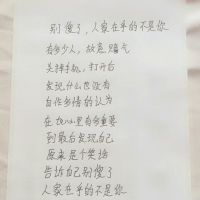 别傻了,人家在乎的不是你
有多少人,故意赌气
关掉手机,打开后
发现什么也没有
自作多情的认为
在他心里有多重要
到最后发现自己
原来是个笑话
告诉自己别傻了
人家在乎的不是你